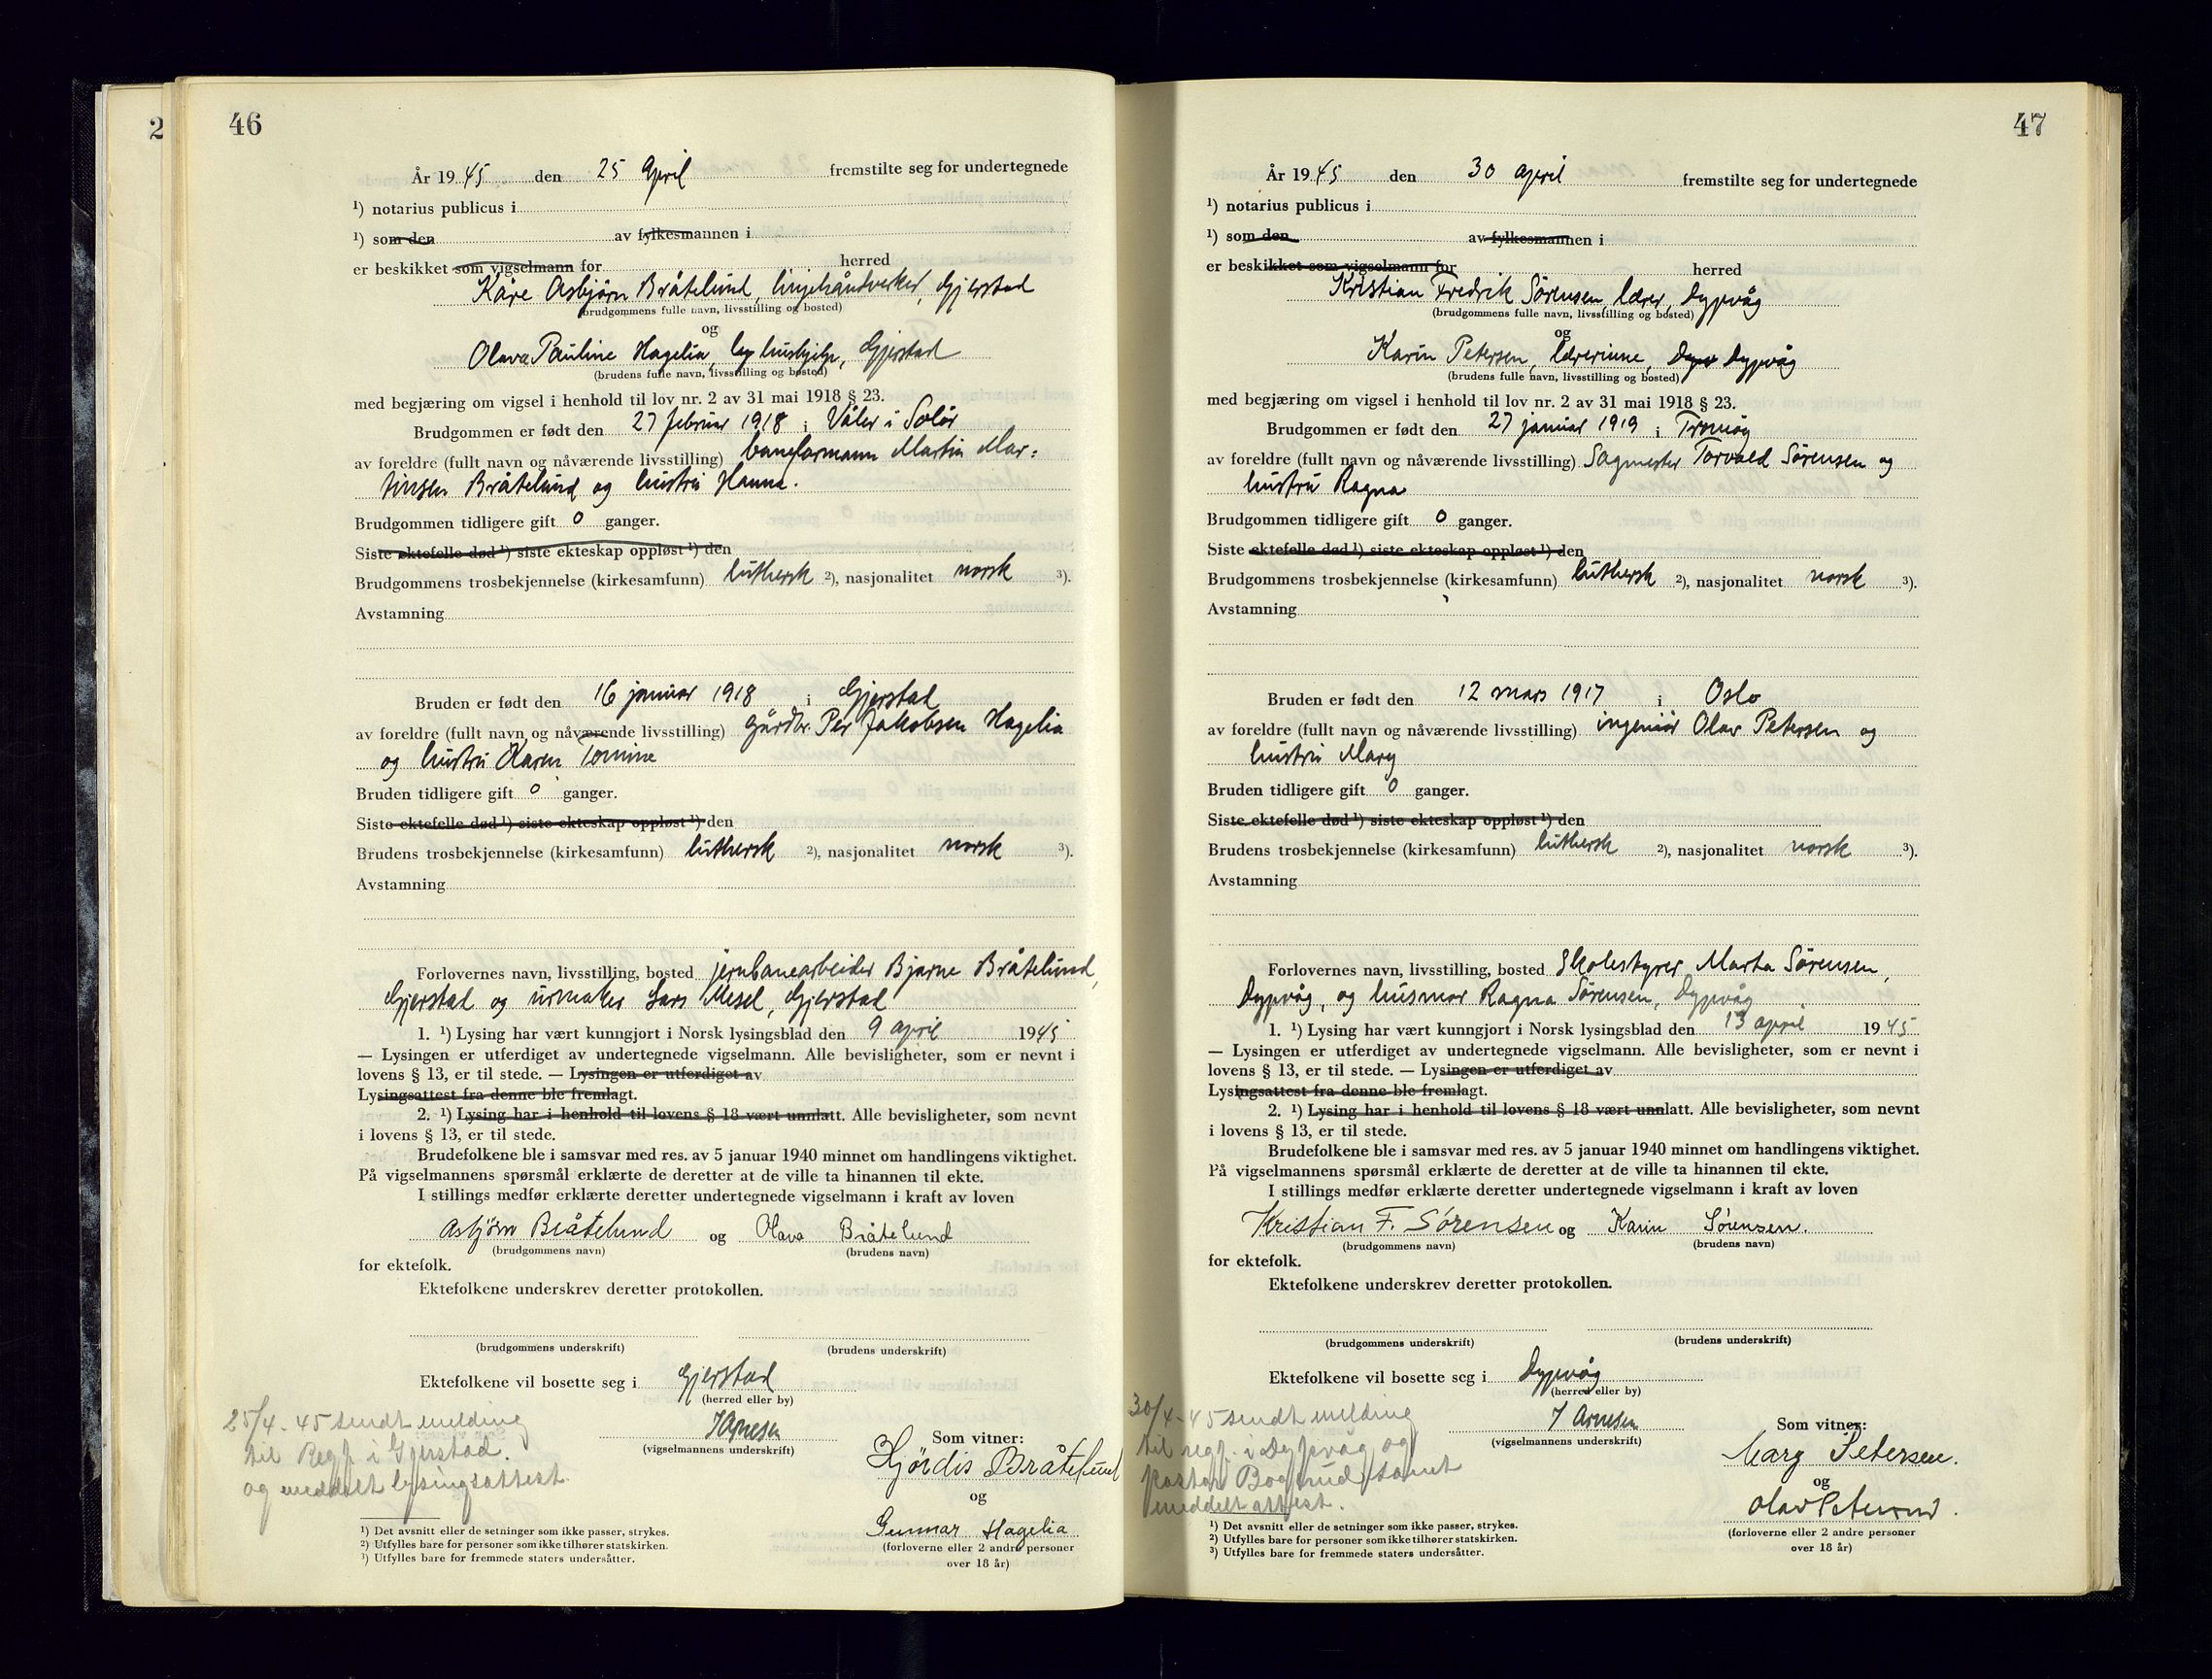 2
46
År 1945 den 25 April fremstilte seg for undertegnede
¹) notarius publicus i
¹) som den av fylkesmannen i
er beskikket som vigselmann for herred
Kåre Asbjørn Bråtelund, linjehåndverker, Gjerstad
(brudgommens fulle navn, livsstilling og bosted)
og
Olava Pauline Hagelia, hushjelp, Gjerstad
(brudens fulle navn, livsstilling og bosted)
med begjæring om vigsel i henhold til lov nr. 2 av 31 mai 1918 § 23.
Brudgommen er født den 27 februar 1918 i Våler i Solør
av foreldre (fullt navn og nåværende livsstilling) baneformann Martin Mar-
tinsen Bråtelund og hustru Hanna.
Brudgommen tidligere gift 0 ganger.
Siste ektefelle død ¹) siste ekteskap oppløst ¹) den
Brudgommens trosbekjennelse (kirkesamfunn) luthersk ²), nasjonalitet norsk ³).
Avstamning
Bruden er født den 16 januar 1918 i Gjerstad
av foreldre (fullt navn og nåværende livsstilling) gårdbr. Per Jakobsen Hagelia
og hustru Karen Tomine
Bruden tidligere gift 0 ganger.
Siste ektefelle død ¹) siste ekteskap oppløst ¹) den
Brudens trosbekjennelse (kirkesamfunn) luthersk ²), nasjonalitet norsk ³).
Avstamning
Forlovernes navn, livsstilling, bosted jernbanearbeider Bjarne Bråtelund,
Gjerstad og urmaker Lars Mesel, Gjerstad
1. ¹) Lysing har vært kunngjort i Norsk lysingsblad den 9 april 1945
— Lysingen er utferdiget av undertegnede vigselmann. Alle bevisligheter, som er nevnt i
lovens § 13, er til stede. — Lysingen er utferdiget av
Lysingsattest fra denne ble fremlagt.
2. ¹) Lysing har i henhold til lovens § 18 vært unnlatt. Alle bevisligheter, som nevnt
i lovens § 13, er til stede.
Brudefolkene ble i samsvar med res. av 5 januar 1940 minnet om handlingens viktighet.
På vigselmannens spørsmål erklærte de deretter at de ville ta hinannen til ekte.
I stillings medfør erklærte deretter undertegnede vigselmann i kraft av loven
Asbjörn Bråtelund og Olava Bråtelund
(brudgommens navn) (brudens navn)
for ektefolk.
Ektefolkene underskrev deretter protokollen.
(brudgommens underskrift) (brudens underskrift)
Ektefolkene vil bosette seg i Gjerstad
(herred eller by)
25/4-45 sendt melding
til Regf. i Gjerstad.
og meddelt lysingsattest.
J Arnesen
(vigselmannens underskrift)
Som vitner:
Hjördis Bråtelund
og
Gunnar Hagelia
(forloverne eller 2 andre personer
over 18 år)
¹) Det avsnitt eller de setninger som ikke passer, strykes.
²) Utfylles bare for personer som ikke tilhører statskirken.
³) Utfylles bare for fremmede staters undersåtter.
47
År 1945 den 30 april fremstilte seg for undertegnede
¹) notarius publicus i
¹) som den av fylkesmannen i
er beskikket som vigselmann for herred
Kristian Fredrik Sørensen, lærer, Dypvåg
(brudgommens fulle navn, livsstilling og bosted)
og
Karin Petersen, lærerinne, Dypv Dypvåg
(brudens fulle navn, livsstilling og bosted)
med begjæring om vigsel i henhold til lov nr. 2 av 31 mai 1918 § 23.
Brudgommen er født den 27 januar 1919 i Tromøy
av foreldre (fullt navn og nåværende livsstilling) Sagmester Torvald Sørensen og
hustru Ragna
Brudgommen tidligere gift 0 ganger.
Siste ektefelle død ¹) siste ekteskap oppløst ¹) den
Brudgommens trosbekjennelse (kirkesamfunn) luthersk ²), nasjonalitet norsk ³).
Avstamning
Bruden er født den 12 mars 1917 i Oslo
av foreldre (fullt navn og nåværende livsstilling) ingeniør Olav Petersen og
hustru Mary
Bruden tidligere gift 0 ganger.
Siste ektefelle død ¹) siste ekteskap oppløst ¹) den
Brudens trosbekjennelse (kirkesamfunn) luthersk ²), nasjonalitet norsk ³).
Avstamning
Forlovernes navn, livsstilling, bosted Skolestyrer Marta Sørensen,
Dypvåg, og husmor Ragna Sørensen, Dypvåg
1. ¹) Lysing har vært kunngjort i Norsk lysingsblad den 13 april 1945
— Lysingen er utferdiget av undertegnede vigselmann. Alle bevisligheter, som er nevnt i
lovens § 13, er til stede. — Lysingen er utferdiget av
Lysingsattest fra denne ble fremlagt.
2. ¹) Lysing har i henhold til lovens § 18 vært unnlatt. Alle bevisligheter, som nevnt
i lovens § 13, er til stede.
Brudefolkene ble i samsvar med res. av 5 januar 1940 minnet om handlingens viktighet.
På vigselmannens spørsmål erklærte de deretter at de ville ta hinannen til ekte.
I stillings medfør erklærte deretter undertegnede vigselmann i kraft av loven
Kristian F. Sörensen og Karin Sörensen.
(brudgommens navn) (brudens navn)
for ektefolk.
Ektefolkene underskrev deretter protokollen.
(brudgommens underskrift) (brudens underskrift)
Ektefolkene vil bosette seg i Dypvåg
(herred eller by)
30/4-45 sendt melding
til regf. i Dypvåg og
pastor Bogrud samt
meddelt attest.
J Arnesen
(vigselmannens underskrift)
Som vitner:
Mary Petersen.
og
Olav Petersen.
(forloverne eller 2 andre personer
over 18 år)
¹) Det avsnitt eller de setninger som ikke passer, strykes.
²) Utfylles bare for personer som ikke tilhører statskirken.
³) Utfylles bare for fremmede staters undersåtter.